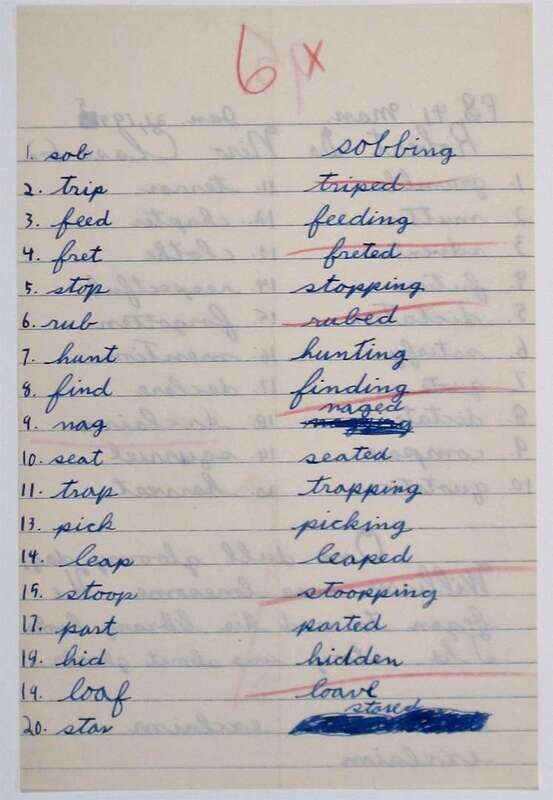 6 x
1. sob sobbing
2. trip triped
3. feed feeding
4. fret freted
5. stop stopping
6. rub rubed
7. hunt hunting
8. find finding
9. nag naged
10. seat seated
11. trap trapping
13. pick picking
14. leap leaped
15. stoop stoopping
17. part parted
19. hid hidden
19. loaf loave
20. star stared